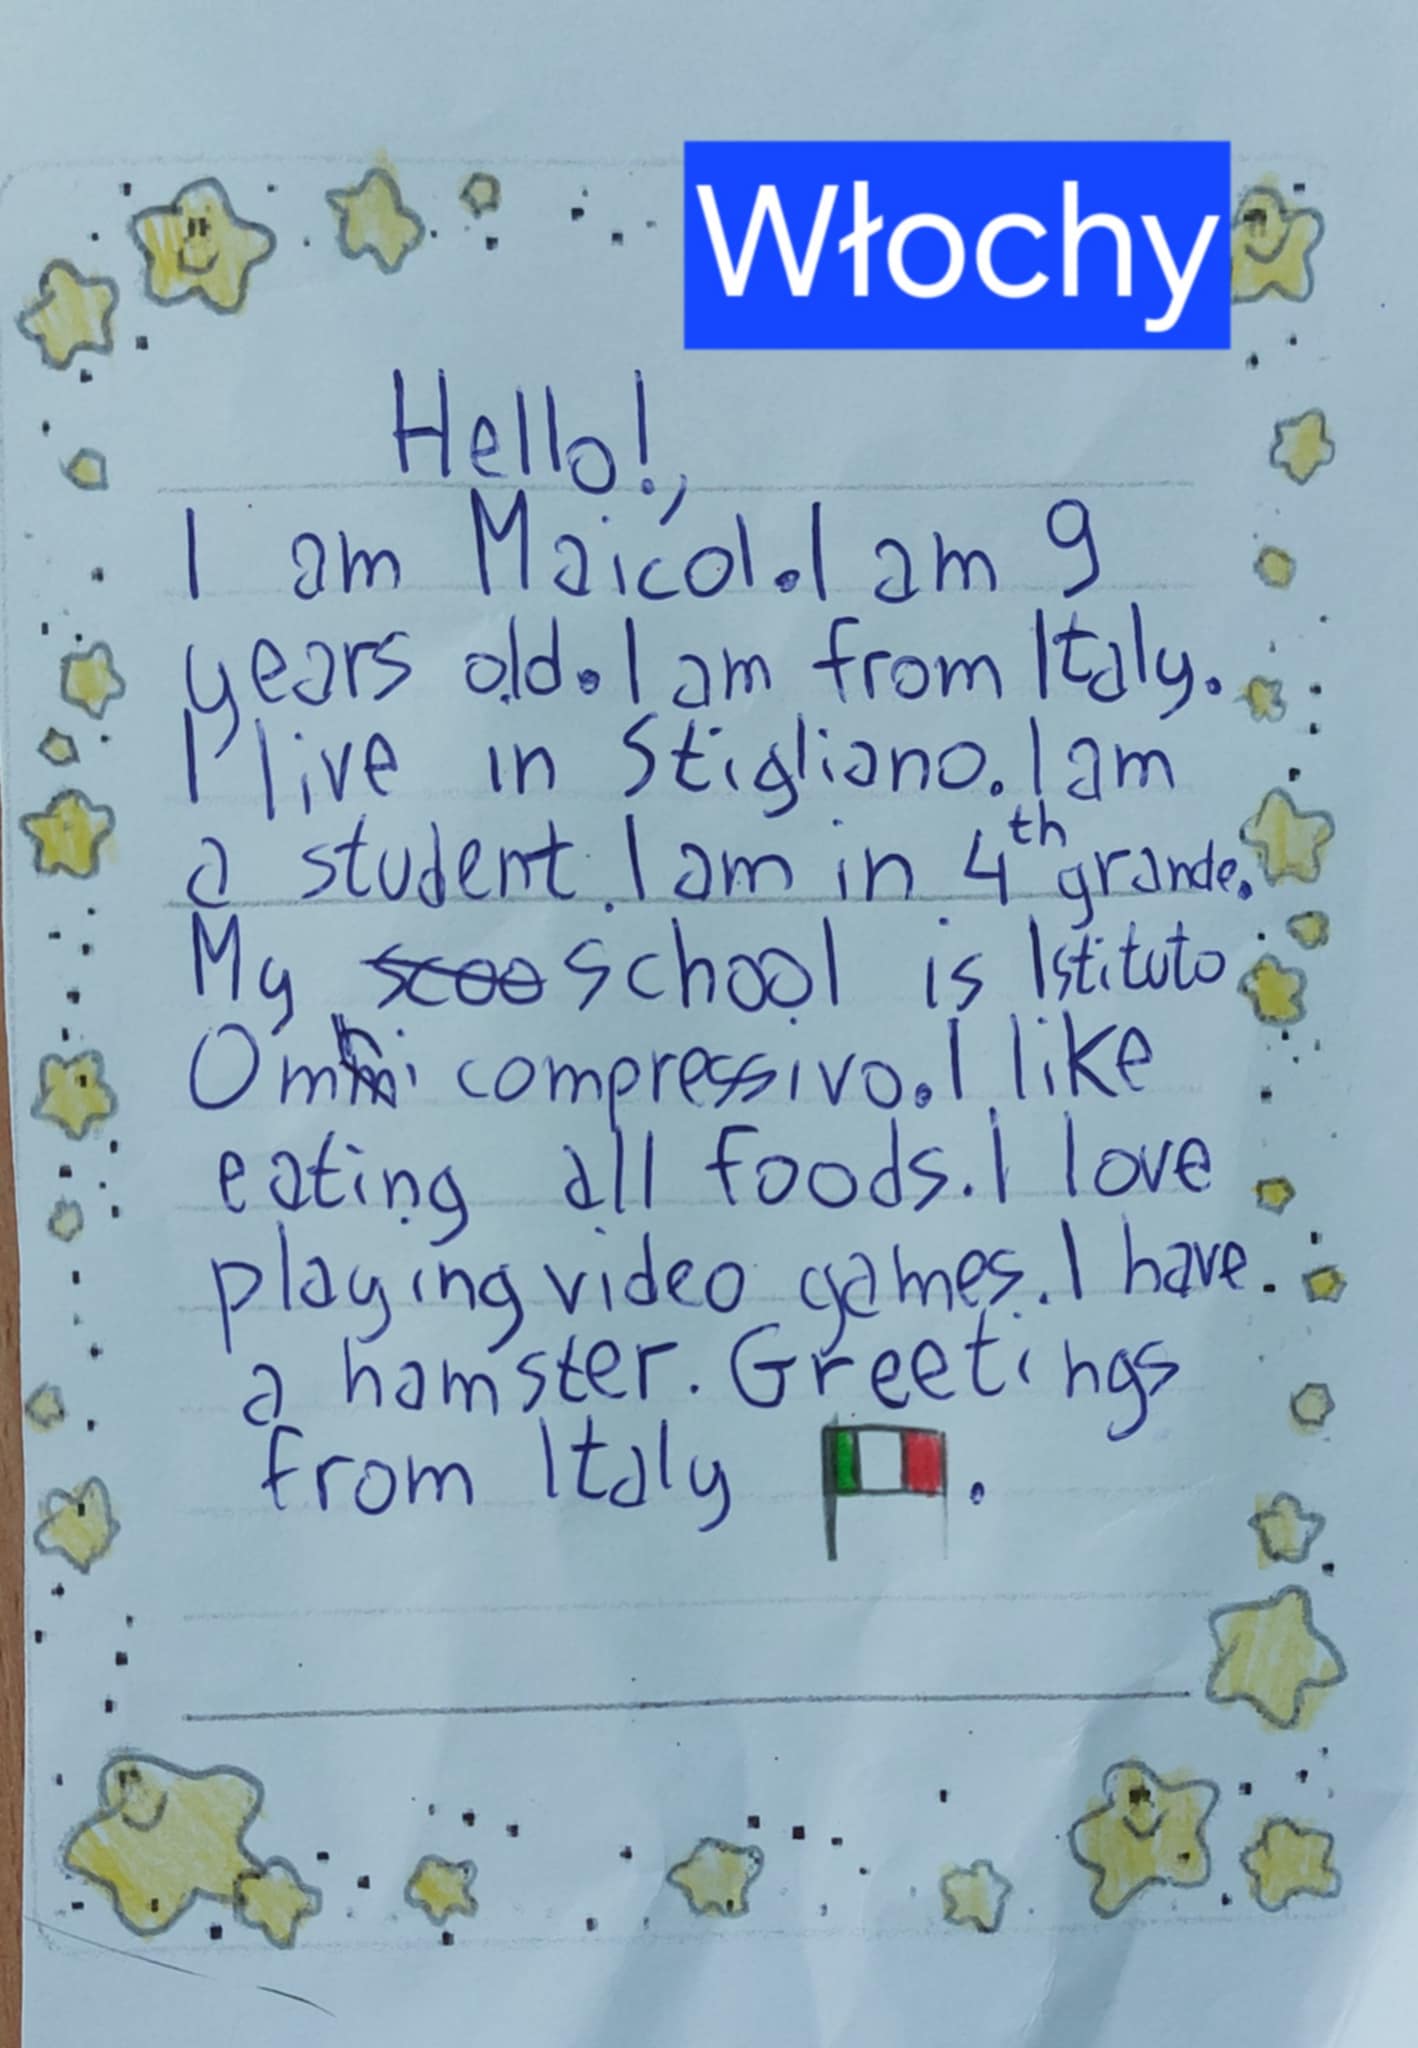 Włochy
Hello!,
I am Maicol. I am 9
years old. I am from Italy.
I live in Stigliano. I am
a student. I am in 4th grande.
My scoo school is Istituto
Omni compressivo. I like
eating all foods. I love
playing video games. I have
a hamster. Greetings
from Italy.